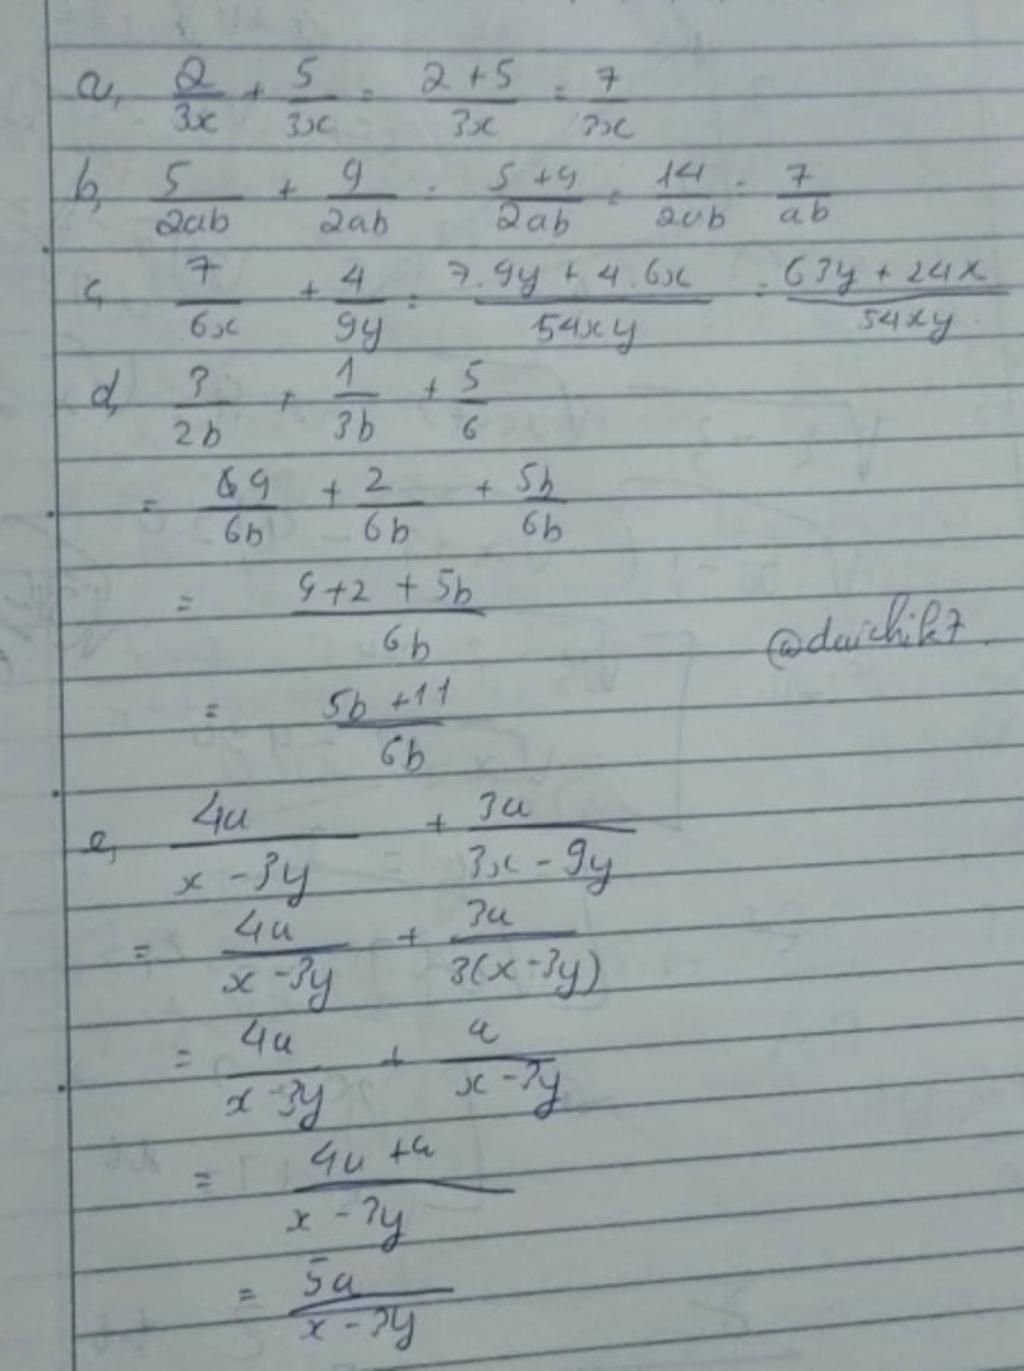 a, 2/3x + 5/3x = 2+5/3x = 7/3x
b, 5/2ab + 9/2ab = 5+9/2ab = 14/2ab = 7/ab
c, 7/6x + 4/9y = 7.9y + 4.6x/54xy = 63y + 24x/54xy
d, 3/2b + 1/3b + 5/6
= 9/6b + 2/6b + 5b/6b
= 9+2+5b/6b
@daichik7
= 5b+11/6b
e, 4a/x-3y + 3a/3x-9y
= 4a/x-3y + 3a/3(x-3y)
= 4a/x-3y + a/x-3y
= 4a+a/x-3y
= 5a/x-3y